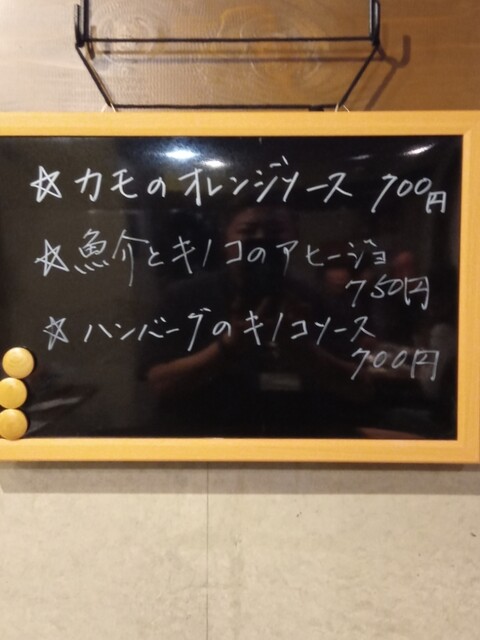 ☆カモのオレンジソース 700円
☆魚介とキノコのアヒージョ
750円
☆ハンバーグのキノコソース
700円